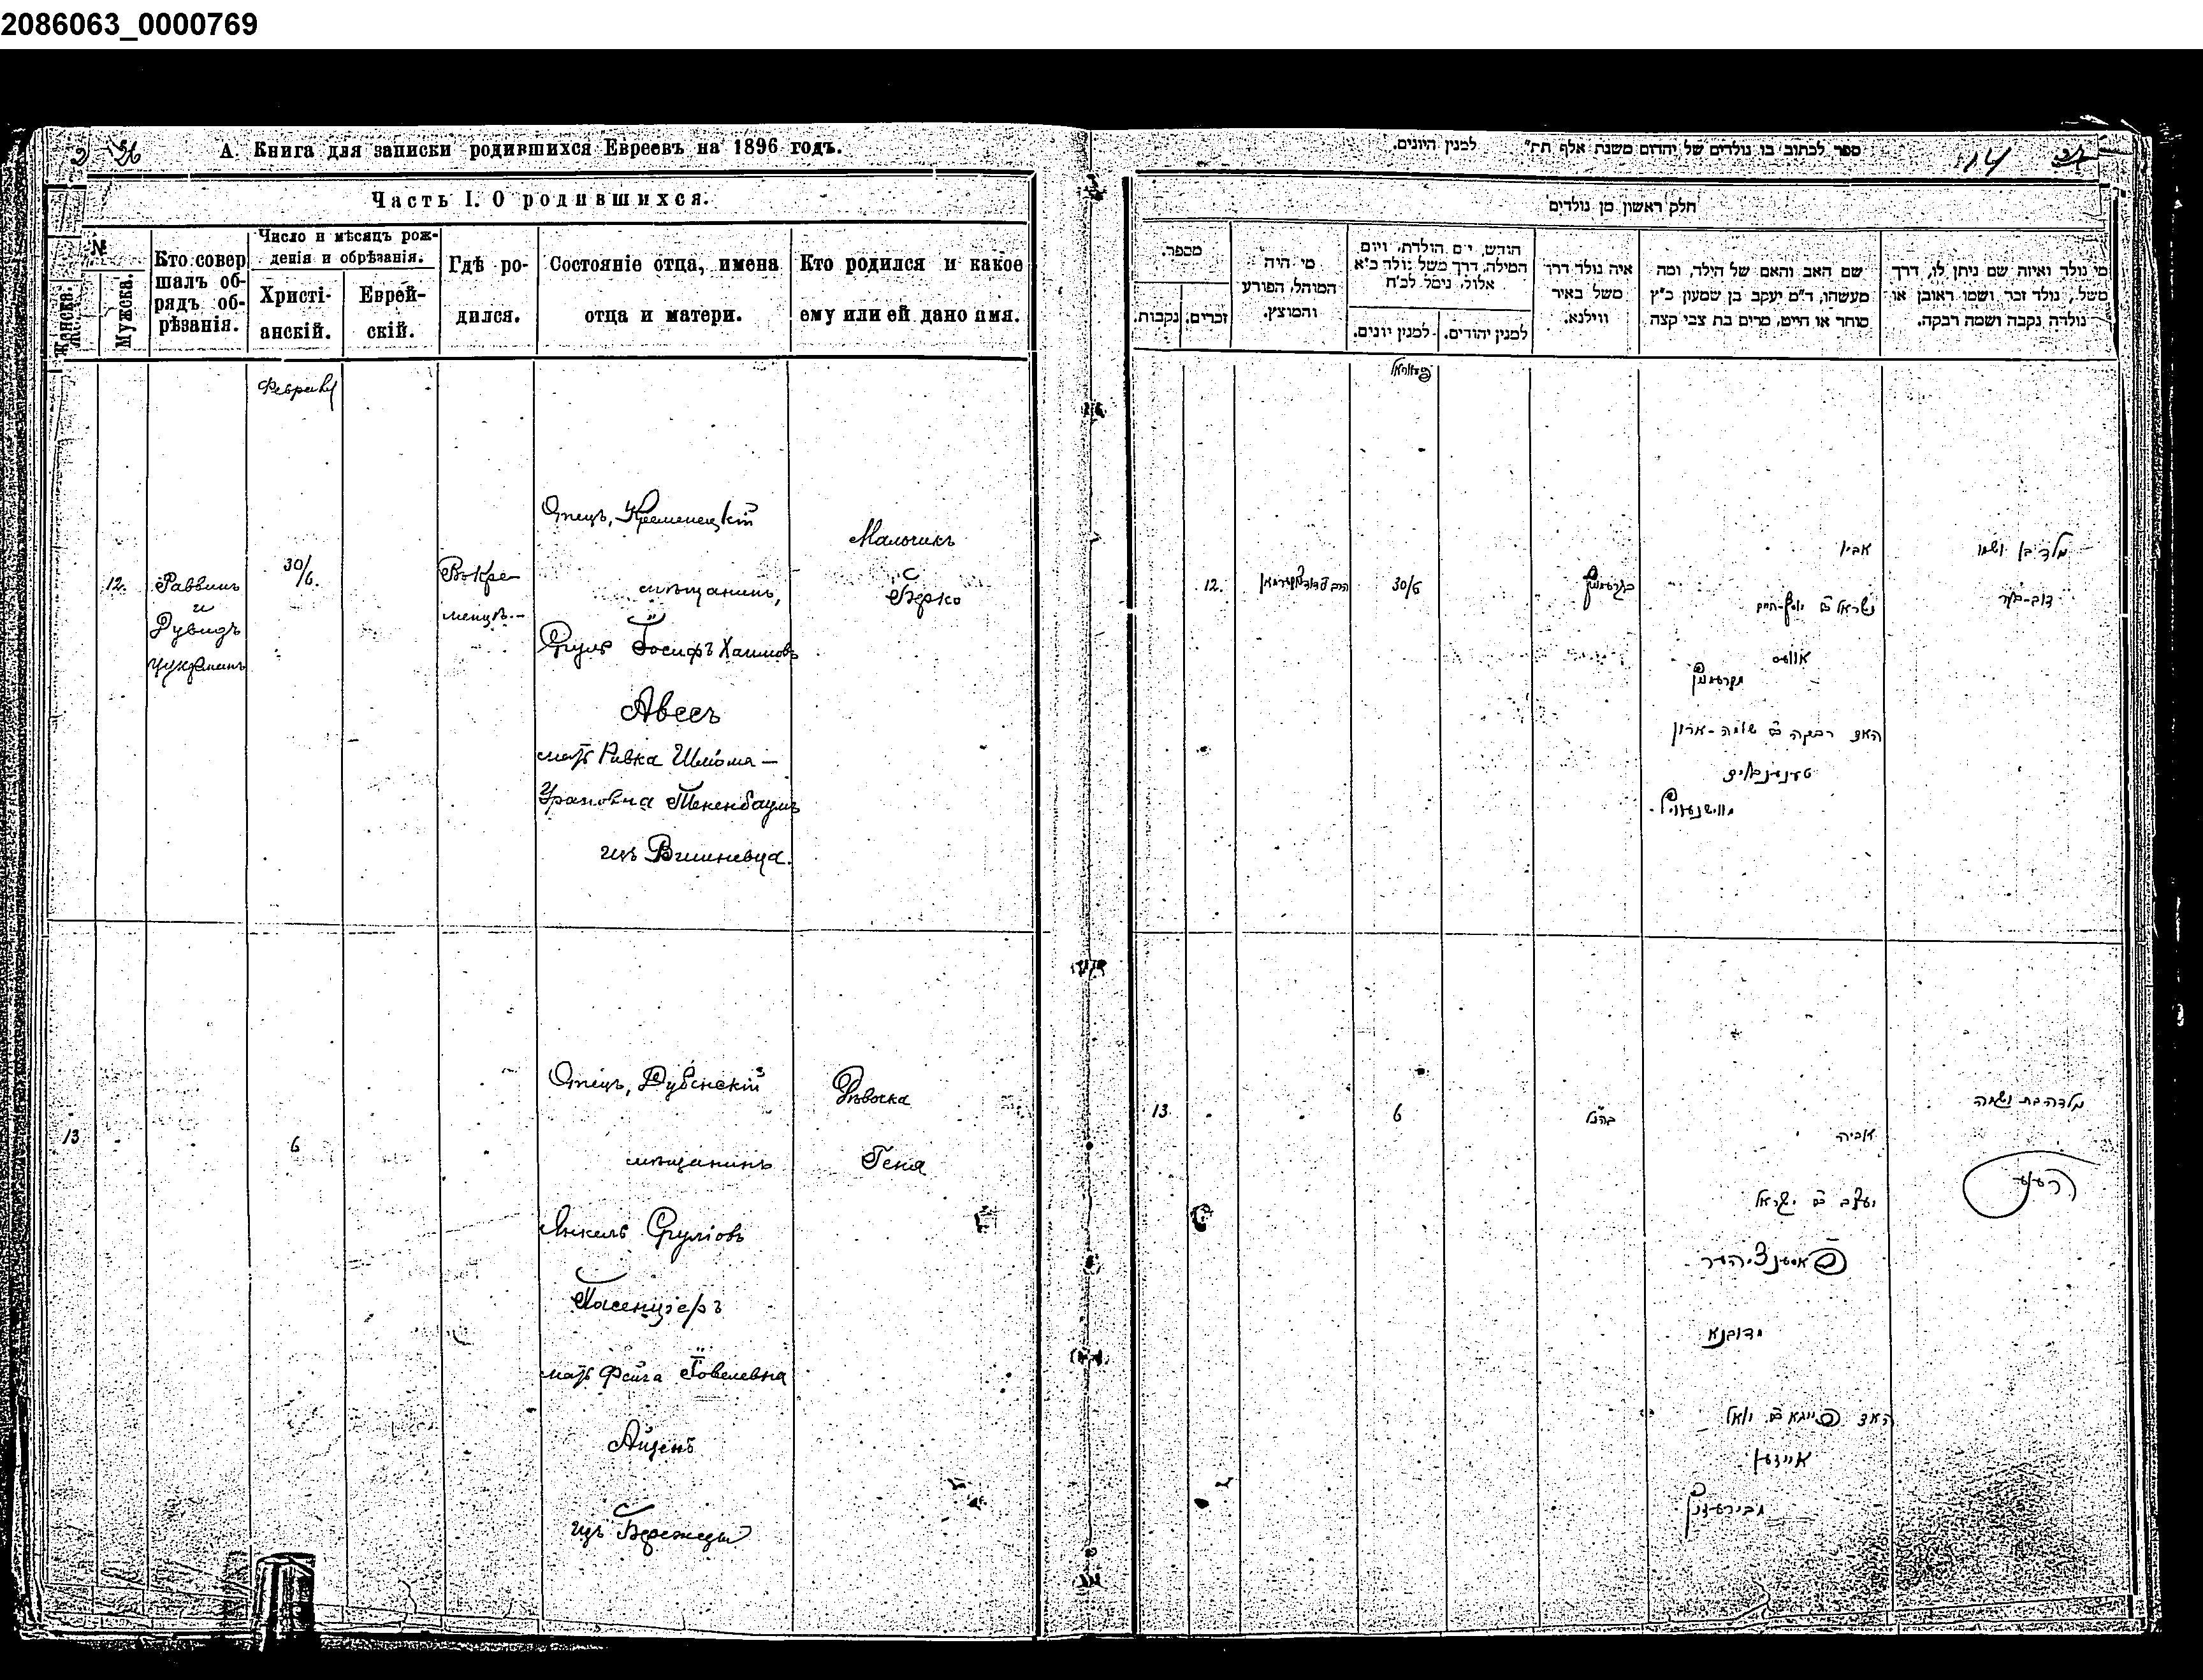 2086063_0000769
А. Книга для записки родившихся Евреевъ на 1896 годъ.
Часть I. О родившихся.
№
Женска.
Мужска.
Кто совер
шалъ об-
рядъ об-
рѣзанія.
Число и мѣсяцъ рож-
денія и обрѣзанія.
Христі-
анскій.
Еврей-
скій.
Гдѣ ро-
дился.
Состояніе отца, имена
отца и матери.
Кто родился и какое
ему или ей дано имя.
Февраль
12.
Раввинъ
и
Дувидъ
Цукерманъ
30/6.
Въ Кре-
менцѣ.-
Отецъ, Кременецкій
мѣщанинъ,
Сруль Іосифъ Хаимовъ
Авесъ
мать Ривка Шлёма-
Урановна Тененбаумъ
изъ Вишневца.
Мальчикъ
Берко
13
6
Отецъ, Дубенскій
мѣщанинъ
Янкель Сруліовъ
Пасенціеръ
мать Фейга Іовелевна
Айзенъ
изъ Бережецъ
Дѣвочка
Геня
ספר לכתוב בו נולדים של יהדום משנת אלף תת״ למנין היונים.
14
חלק ראשון מן נולדים
מספר.
נקבות.
זכרים.
מי היה
המוהל, הפורע
והמוצץ.
חודש, י״ם הולדת, ויום
המילה, דרך משל נולד כ״א
אלול, נימל לכ״ח
למנין יונים.
למנין יהודים.
איה נולד דרך
משל באיר
ווילנא.
שם האב והאם של הילד, ומה
מעשהו, ד״מ יעקב בן שמעון כ״ץ
סוחר או חייט, מרים בת צבי קצה
מי נולד ואיזה שם ניתן לו, דרך
משל, נולד זכר ושמו ראובן או
נולדה נקבה ושמה רבקה.
פעברואל
12.
30/6
בקרעמניץ
אביו
ישראל ב״ם יוסף-חיים
אוועס
מקרעמניץ
האם רבקה ב״ם שלמה-אהרון
טענענבוים
מווישנעוויץ
נולד בן ושמו
דוב-בער
13.
6
כה״נל
אביה
יעקב ב״ם ישראל
פאסענציהער
מדובנא
האם פייגא ב״ם יואל
אייזען
נולדה בת ושמה
העניע